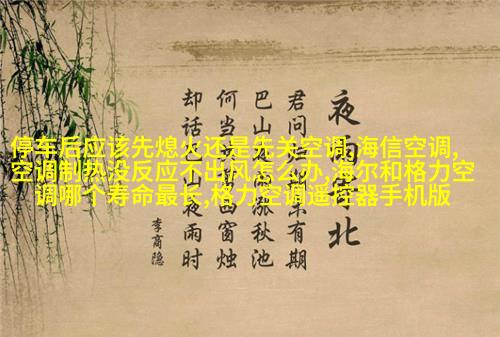 停车后应该先熄火还是先关空调,海信空调,
空调制热没反应不出风怎么办,海尔和格力空
调哪个寿命最长,格力空调遥控器手机版
夜雨北
君问归未有期
巴山涨秋池
何当西窗烛
却话巴山夜雨时
李商隐